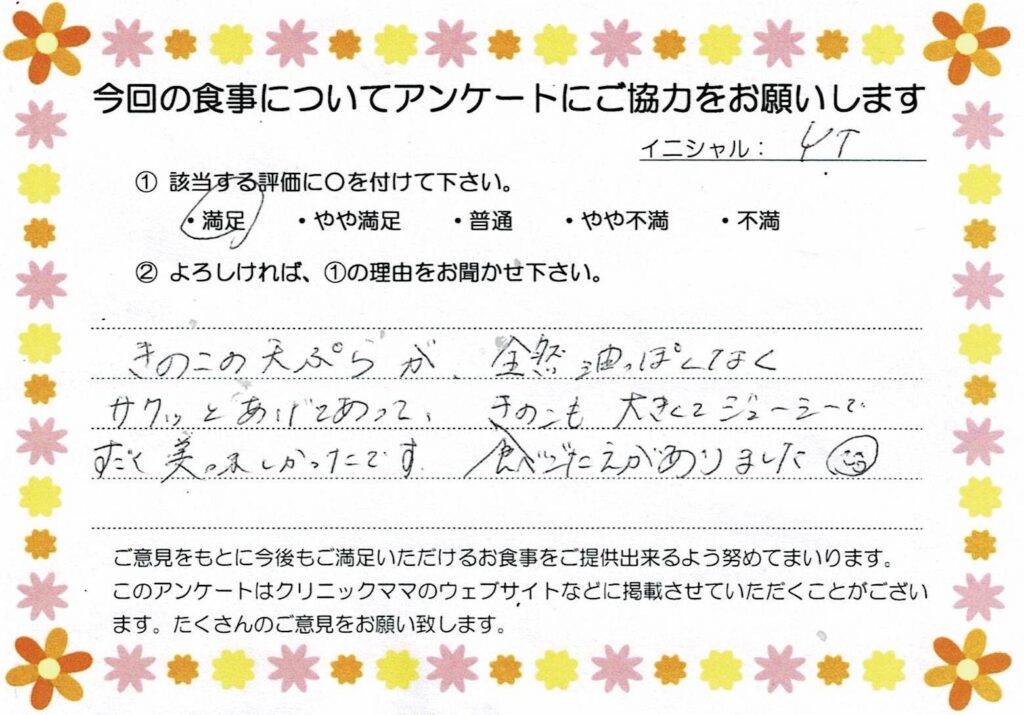 今回の食事についてアンケートにご協力をお願いします
イニシャル： YT
① 該当する評価に〇を付けて下さい。
・満足 ・やや満足 ・普通 ・やや不満 ・不満
② よろしければ、①の理由をお聞かせ下さい。
きのこの天ぷらが、全然油っぽくなく
サクッとあげてあって、きのこも大きくてジューシーで
すごく美味しかったです。食べごたえがありました
ご意見をもとに今後もご満足いただけるお食事をご提供出来るよう努めてまいります。
このアンケートはクリニックママのウェブサイトなどに掲載させていただくことがござい
ます。たくさんのご意見をお願い致します。